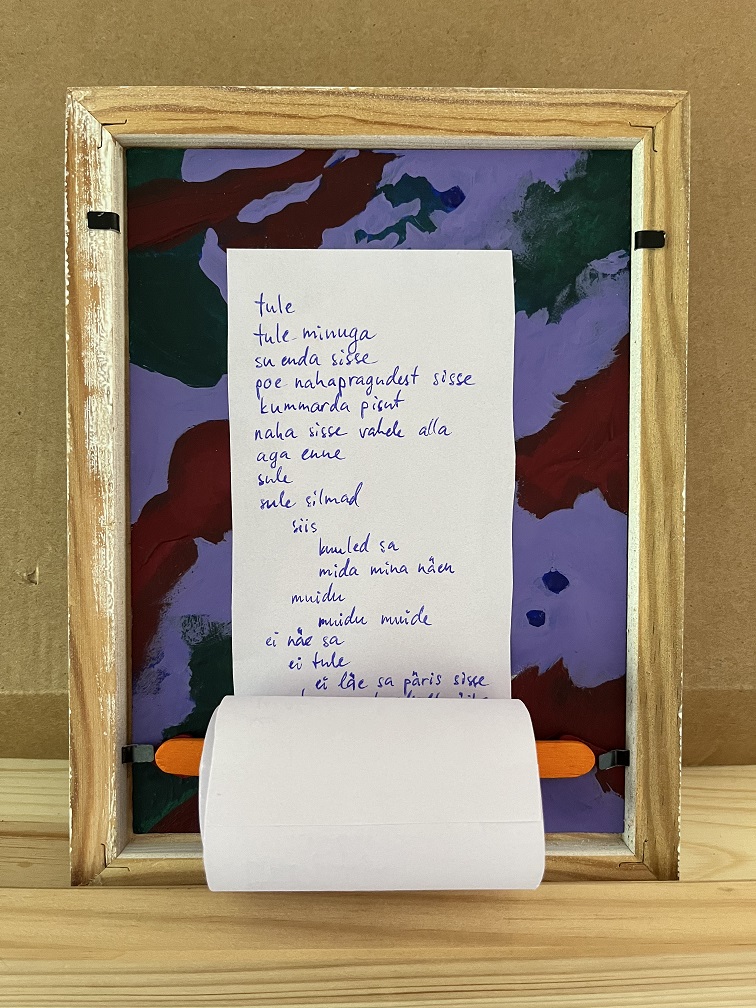 tule
tule minuga
su enda sisse
poe nahapragudest sisse
kummarda pisut
naha sisse vahele alla
aga enne
sule
sule silmad
siis
kuuled sa
mida mina näen
muidu
muidu muide
ei näe sa
ei tule
ei läe sa päris sisse